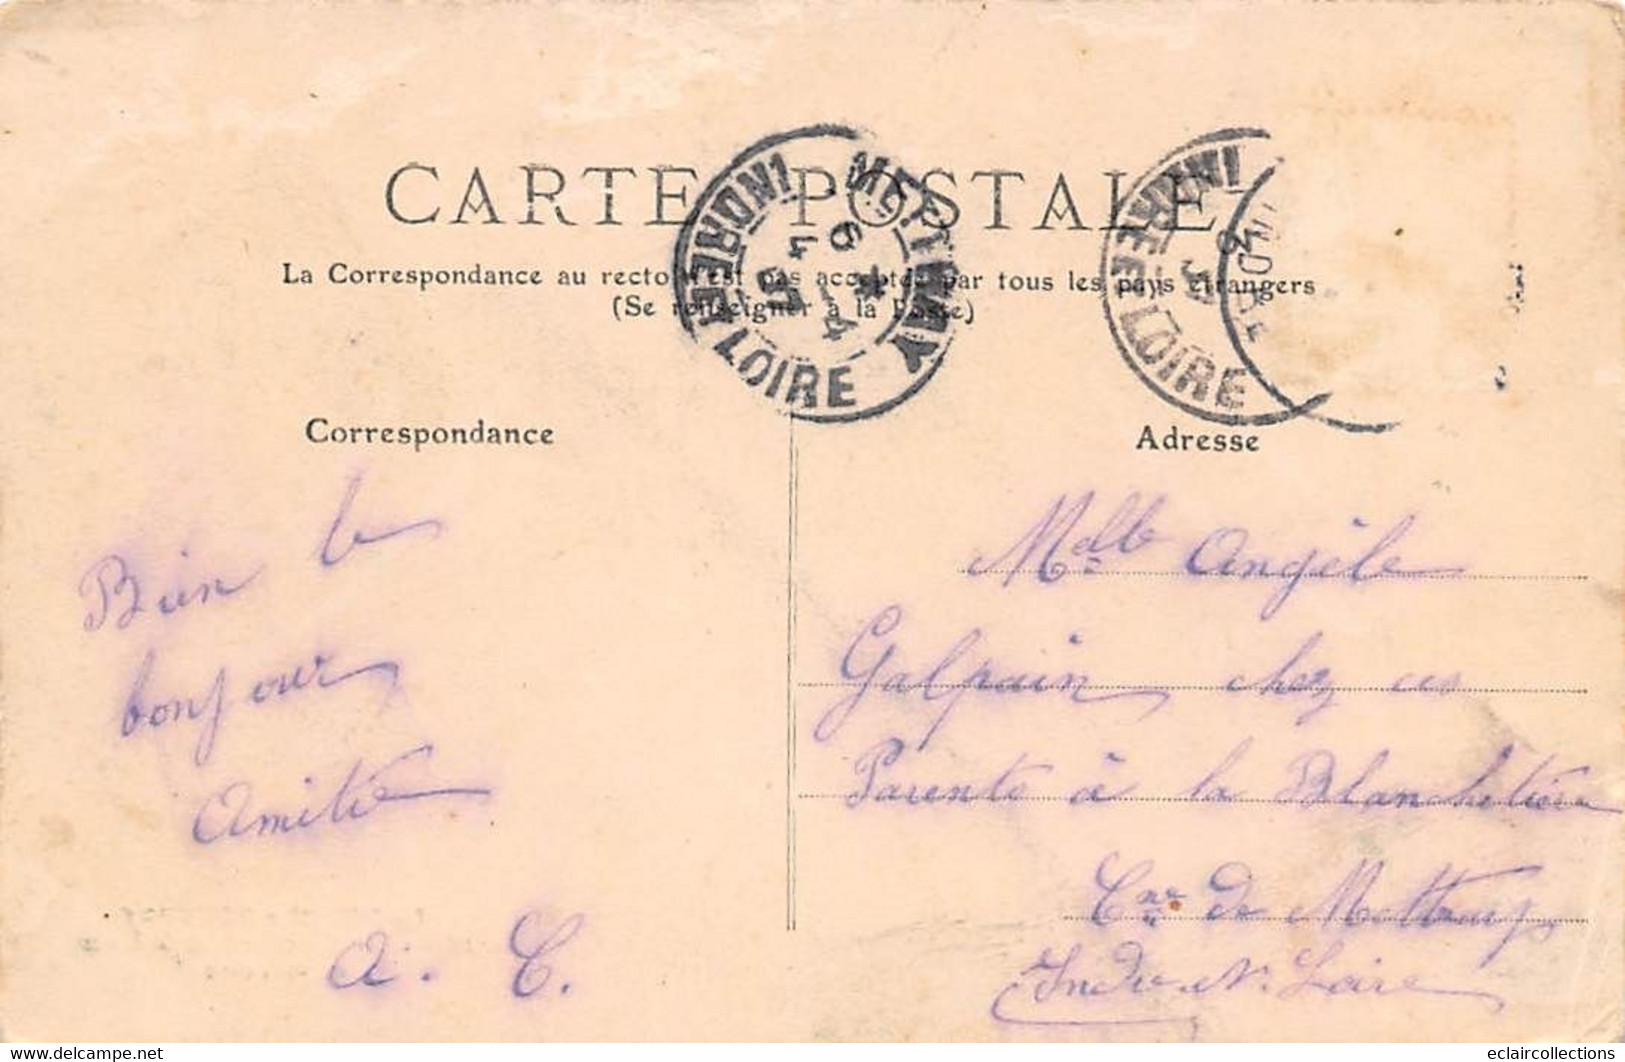 CARTE POSTALE
La Correspondance au recto n'est pas acceptée par tous les pays étrangers
(Se renseigner à la Poste)
METTRAY
6
4 - 4
INDRE ET LOIRE
INDRE ET LOIRE
Correspondance
Adresse
Bien le
bonjour
Amitié
A. C.
Melle Angèle
Galpain chez ses
Parents à la Blanchetière
Cne de Mettray
Indre et Loire
eclaircollections